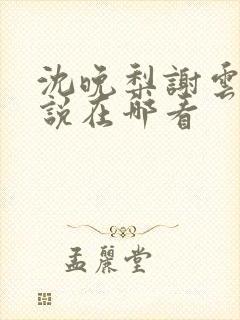 沈晚梨謝雲
說在哪看
孟麗堂